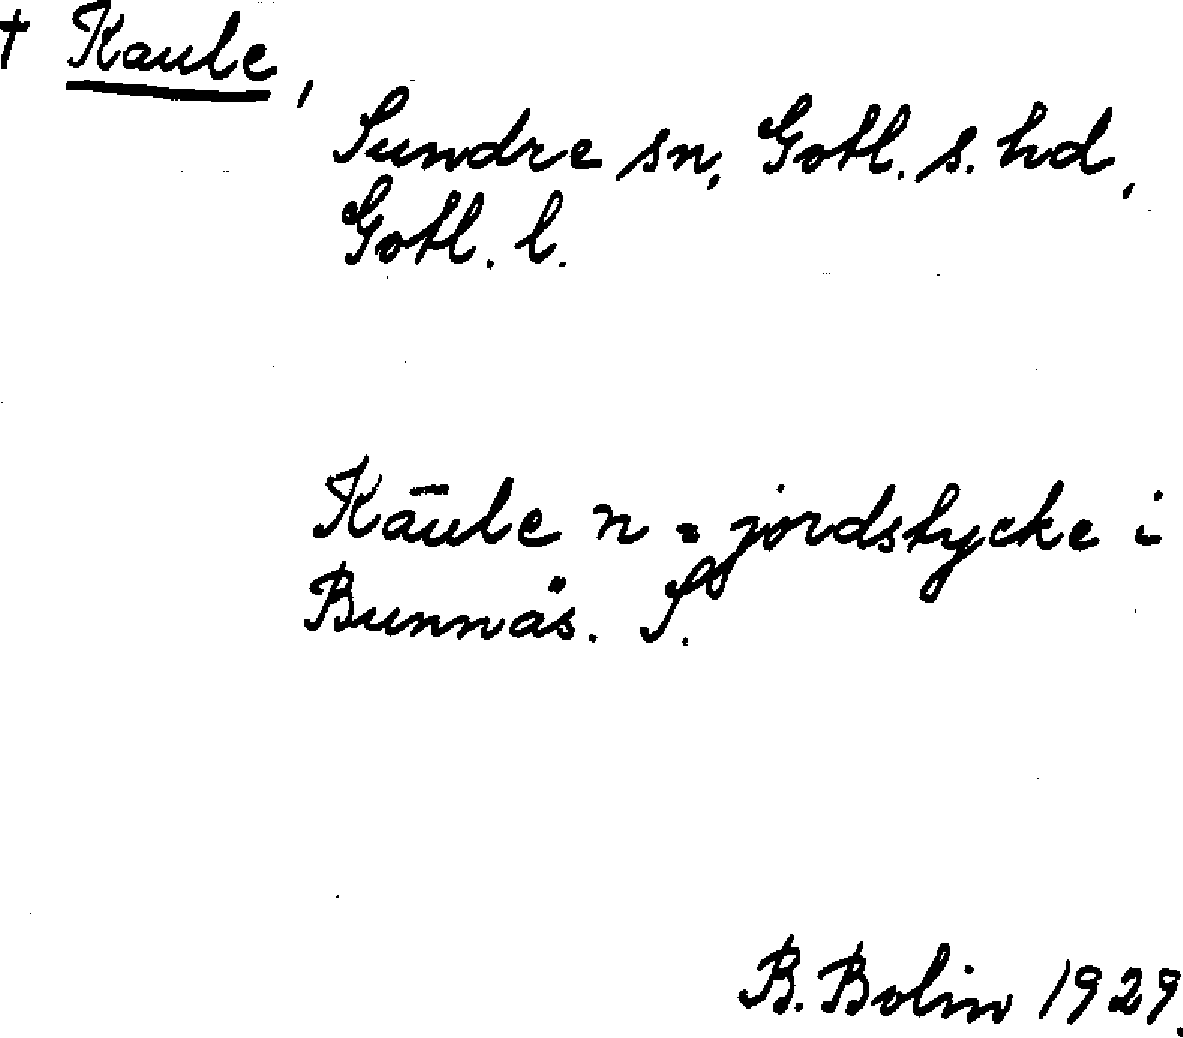 † Kaule,
Sundre sn, Gotl. s. hd,
Gotl. l.
Kāule n = jordstycke i
Bunnäs. S.
B. Bolin 1929.